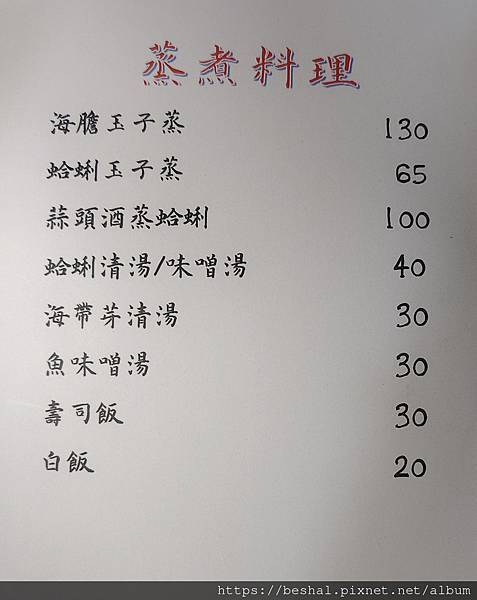 蒸煮料理
海膽玉子蒸 130
蛤蜊玉子蒸 65
蒜頭酒蒸蛤蜊 100
蛤蜊清湯/味噌湯 40
海帶芽清湯 30
魚味噌湯 30
壽司飯 30
白飯 20
https://beshal.pixnet.net/album